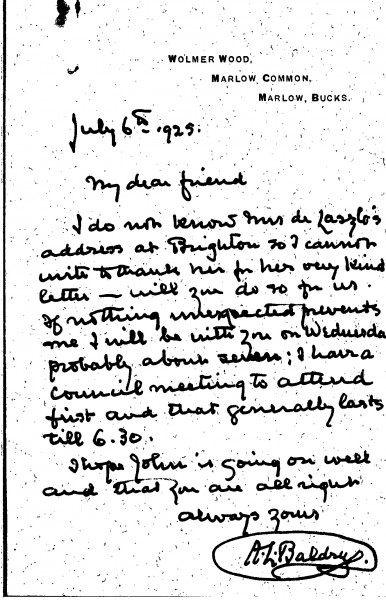 WOLMER WOOD,
MARLOW COMMON,
MARLOW, BUCKS.
July 6th 1925.
My dear friend
I do not know Mrs de Laszlo's
address at Brighton so I cannot
write to thank her for her very kind
letter — will you do so for us.
If nothing unexpected prevents
me I will be with you on Wednesda
probably about seven; I have a
council meeting to attend
first and that generally lasts
till 6.30.
I hope John is going on well
and that you are all right
always yours
A.L. Baldry.